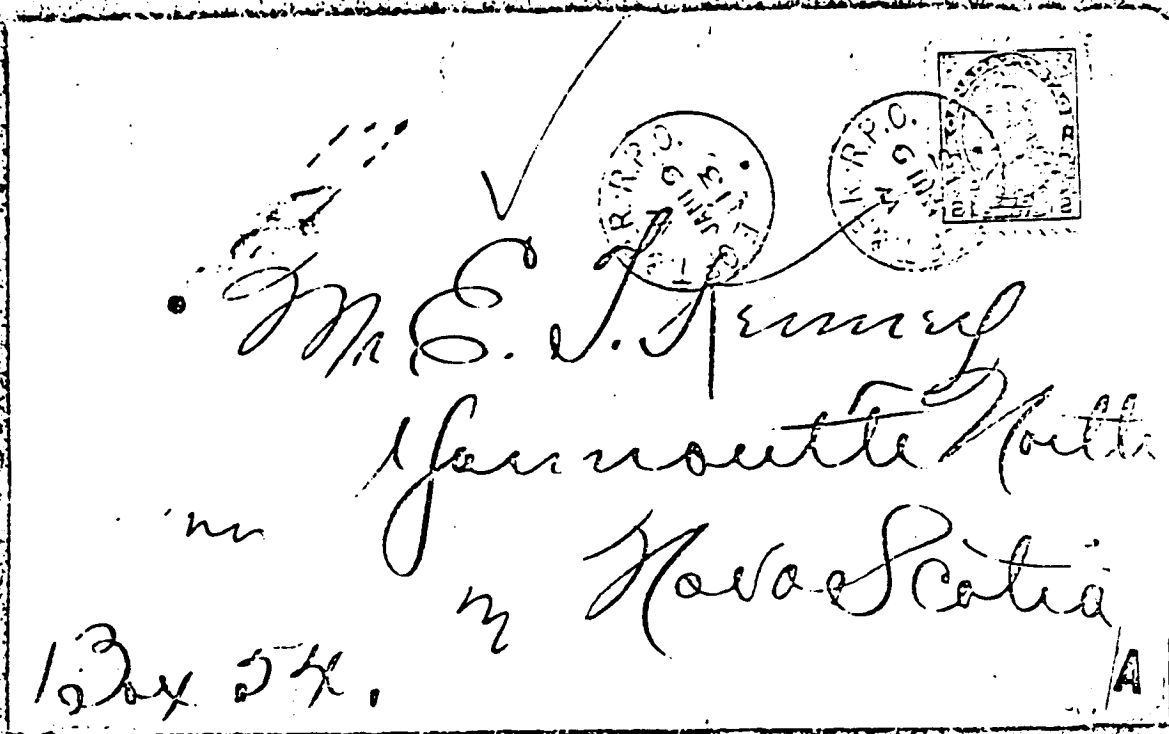 R.P.O. JAN 9 13
R.P.O. 9 13
Mr E. J. Kenney
Yarmouth North
Nova Scotia
Box 54.
A